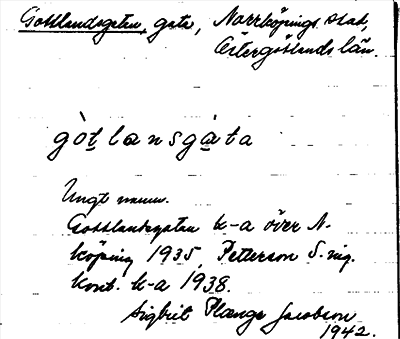 Gottlandsgatan, gata, Norrköpings stad,
Östergötlands län.
gòt lansgàta
Ungt namn.
Gottlandsgatan k-a över N-
köping 1935, Petterson S. ing.
kont. k-a 1938.
Sigbrit Plænge Jacobson
1942.